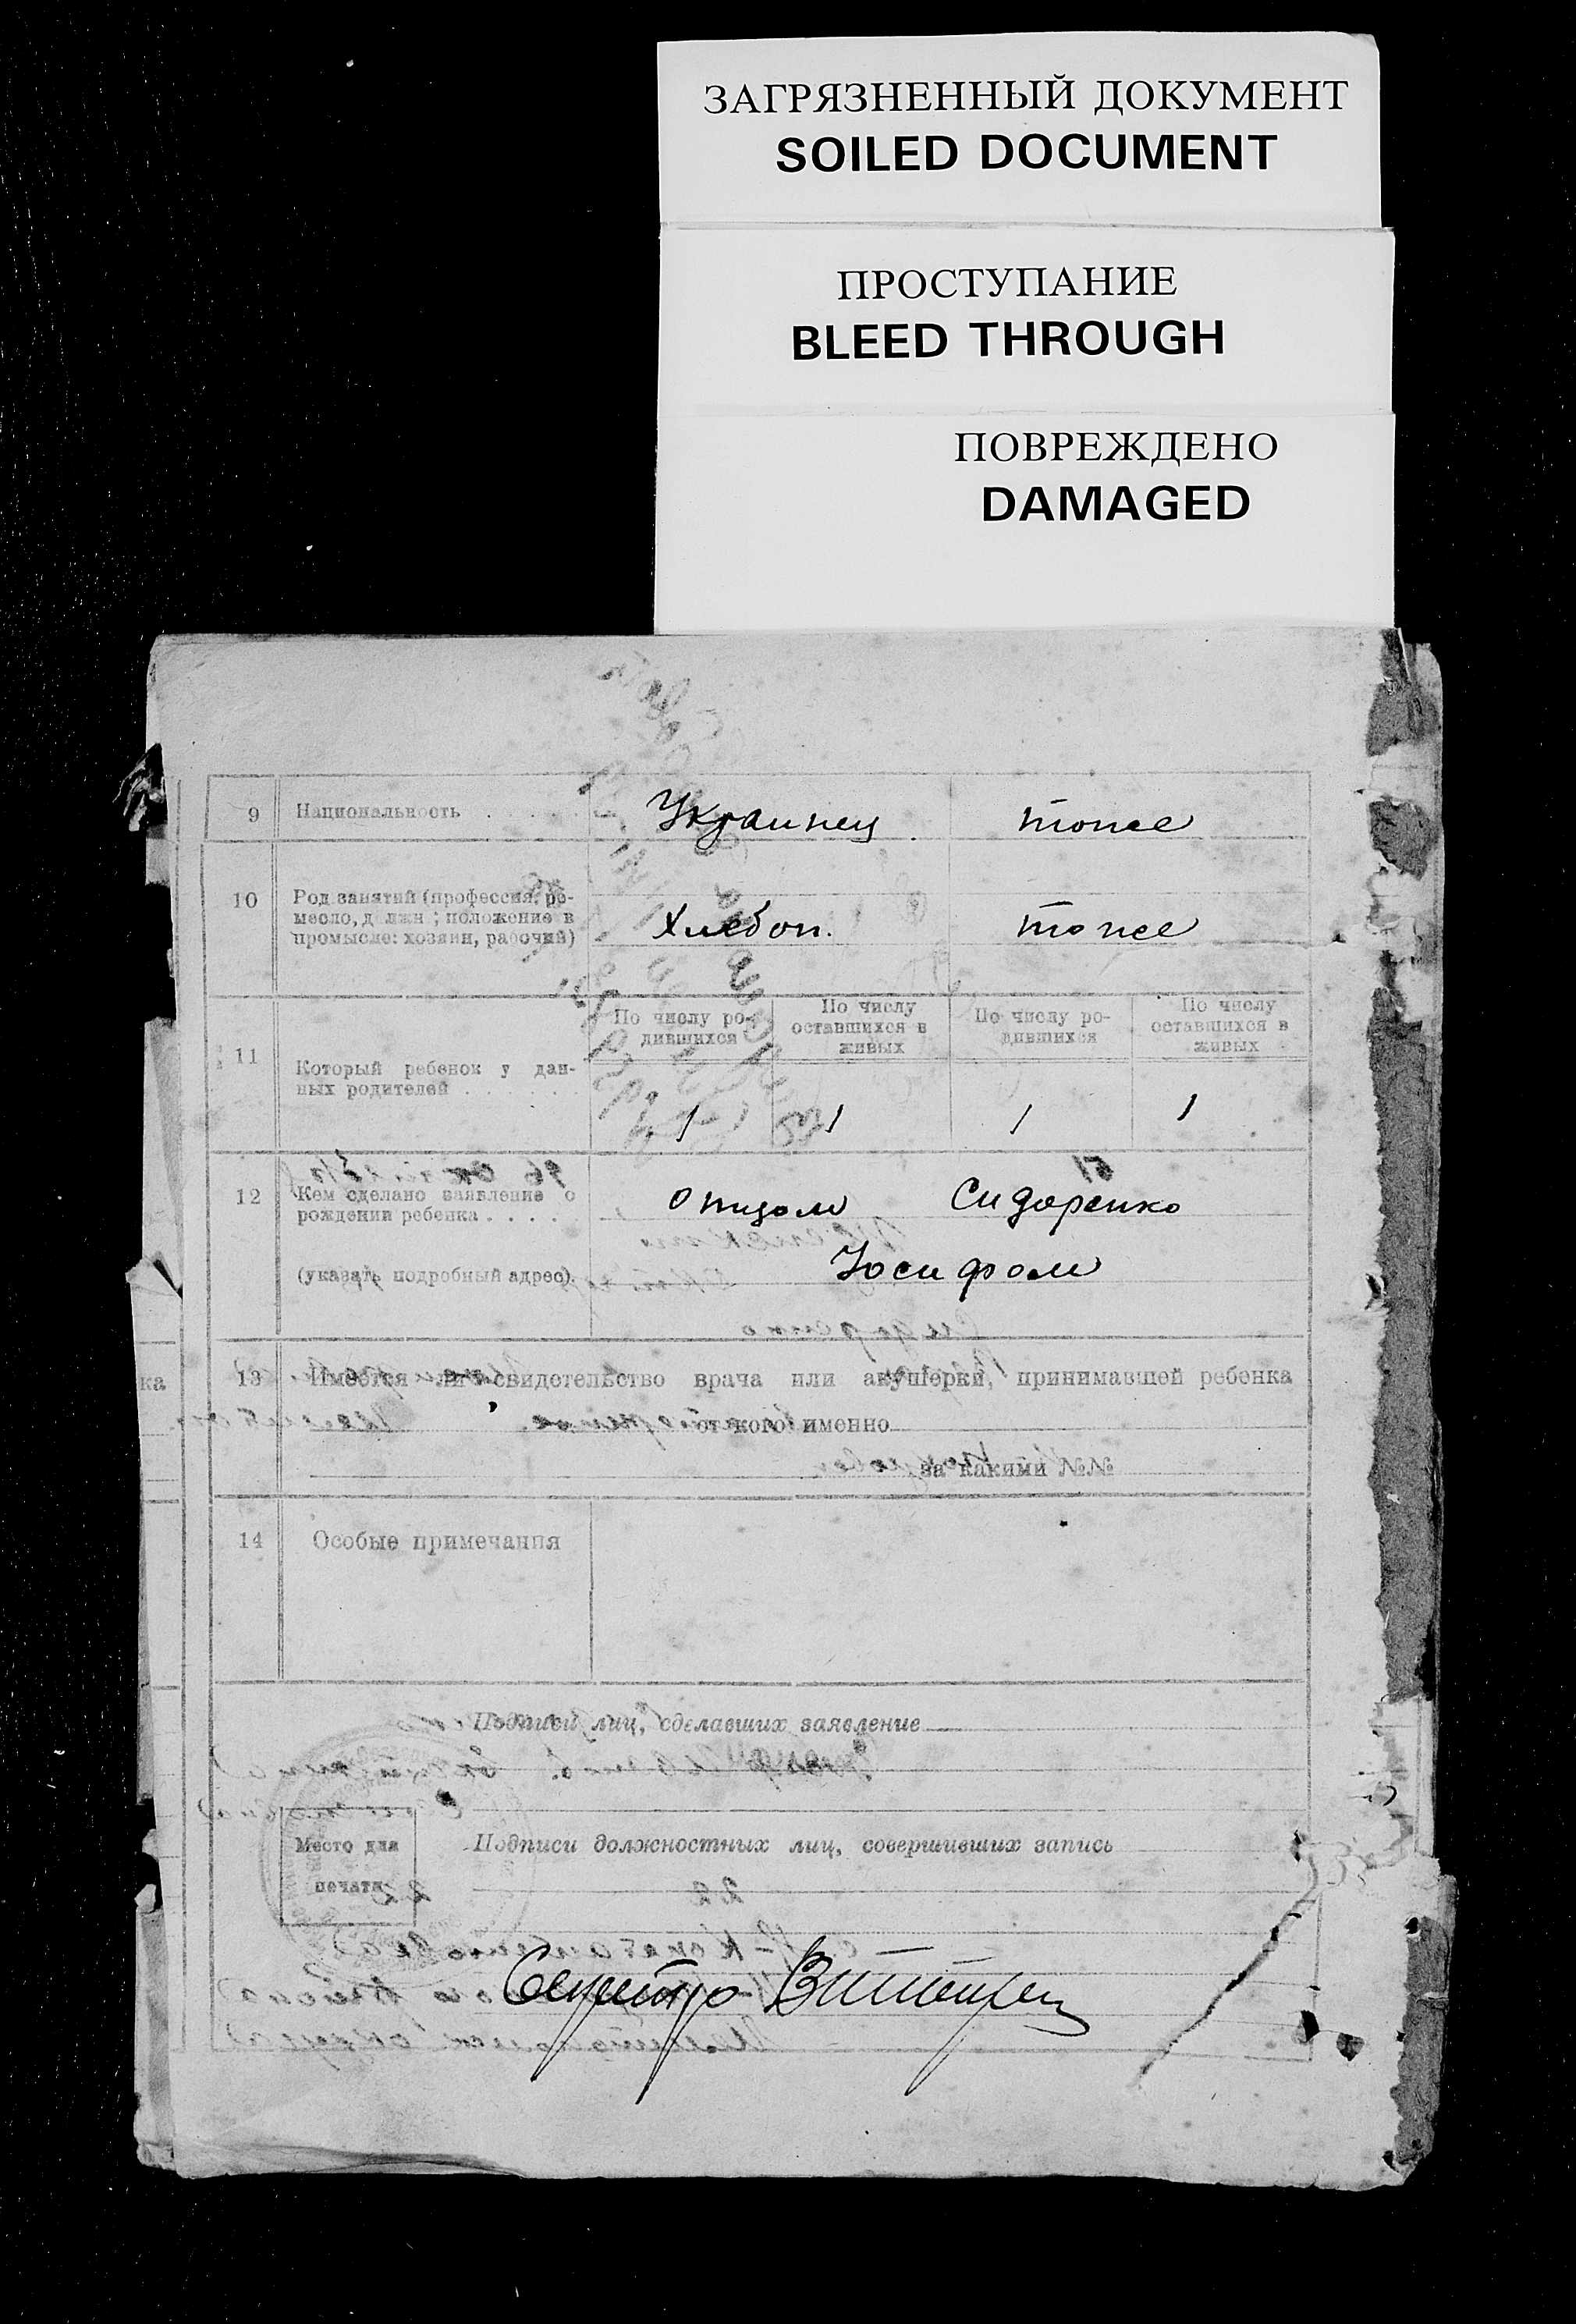 ЗАГРЯЗНЕННЫЙ ДОКУМЕНТ
SOILED DOCUMENT
ПРОСТУПАНИЕ
BLEED THROUGH
ПОВРЕЖДЕНО
DAMAGED
9 Национальность . . . . . Украинец тоже
10 Род занятий (профессия, ре-
месло, д лжн ; положение в
промысле: хозяин, рабочий) Хлебоп. тоже
11 Который ребенок у дан-
ных родителей . . . . . . .
По числу ро-
дившихся
По числу
оставшихся в
живых
По числу ро-
дившихся
По числу
оставшихся в
живых
1 1 1 1
12 Кем сделано заявление о
рождении ребенка . . . .
(указать подробный адрес).
Отцом Сидоренко
Иосифом
ка
13 Имеется ли свидетельство врача или акушерки, принимавшей ребенка
от кого именно
за какими №№
14 Особые примечания
Подписи лиц, сделавших заявление
Место для
печати
Подписи должностных лиц, совершивших запись